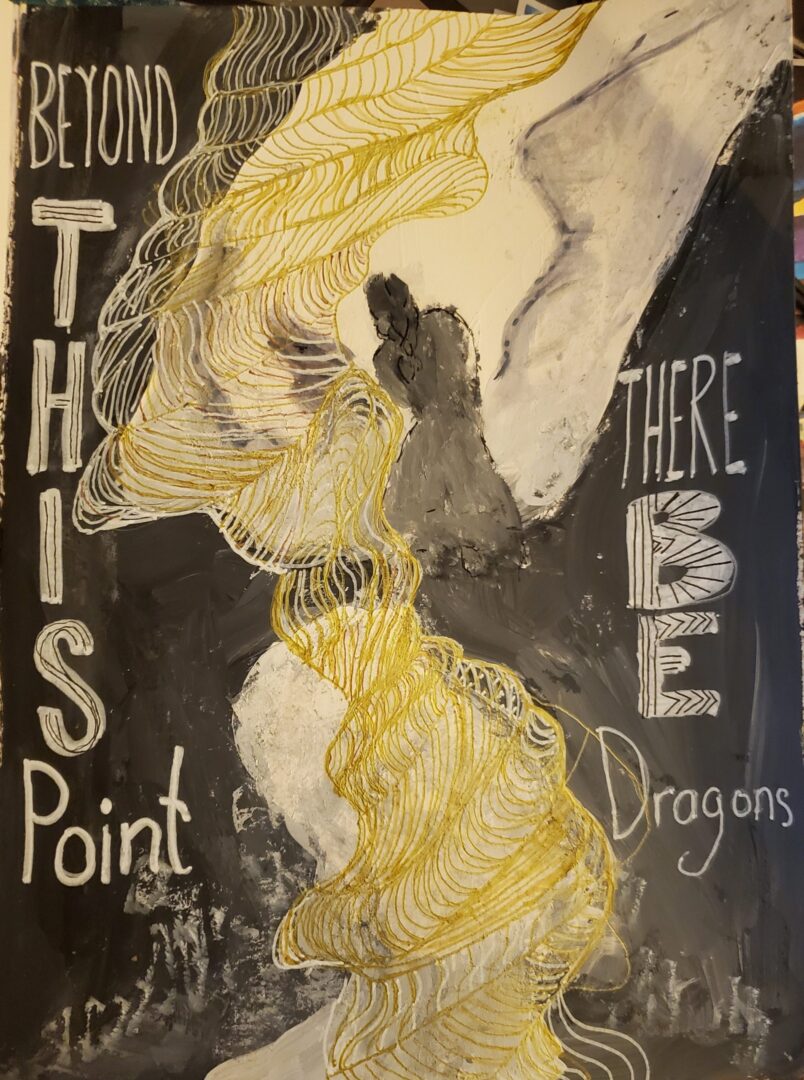 BEYOND
THIS
Point
THERE
BE
Dragons